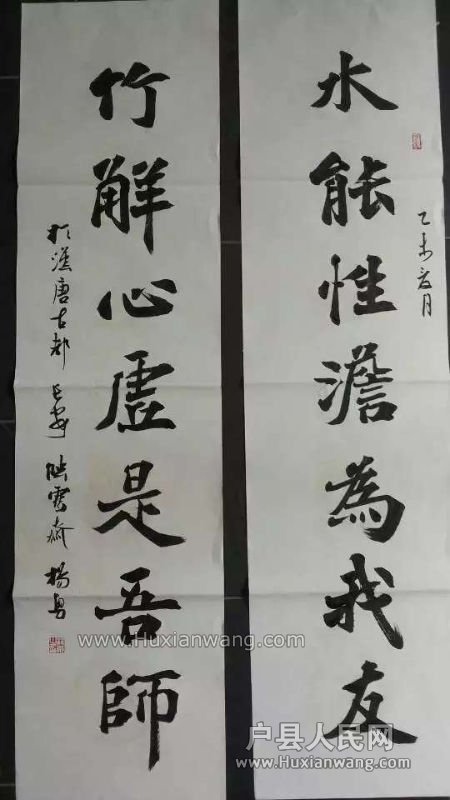 水能性澹為我友
乙未六月
竹解心虛是吾師
於漢唐古都長安 雲齋 楊勇
www.Huxianwang.com
户县人民网
www.Huxianwang.com